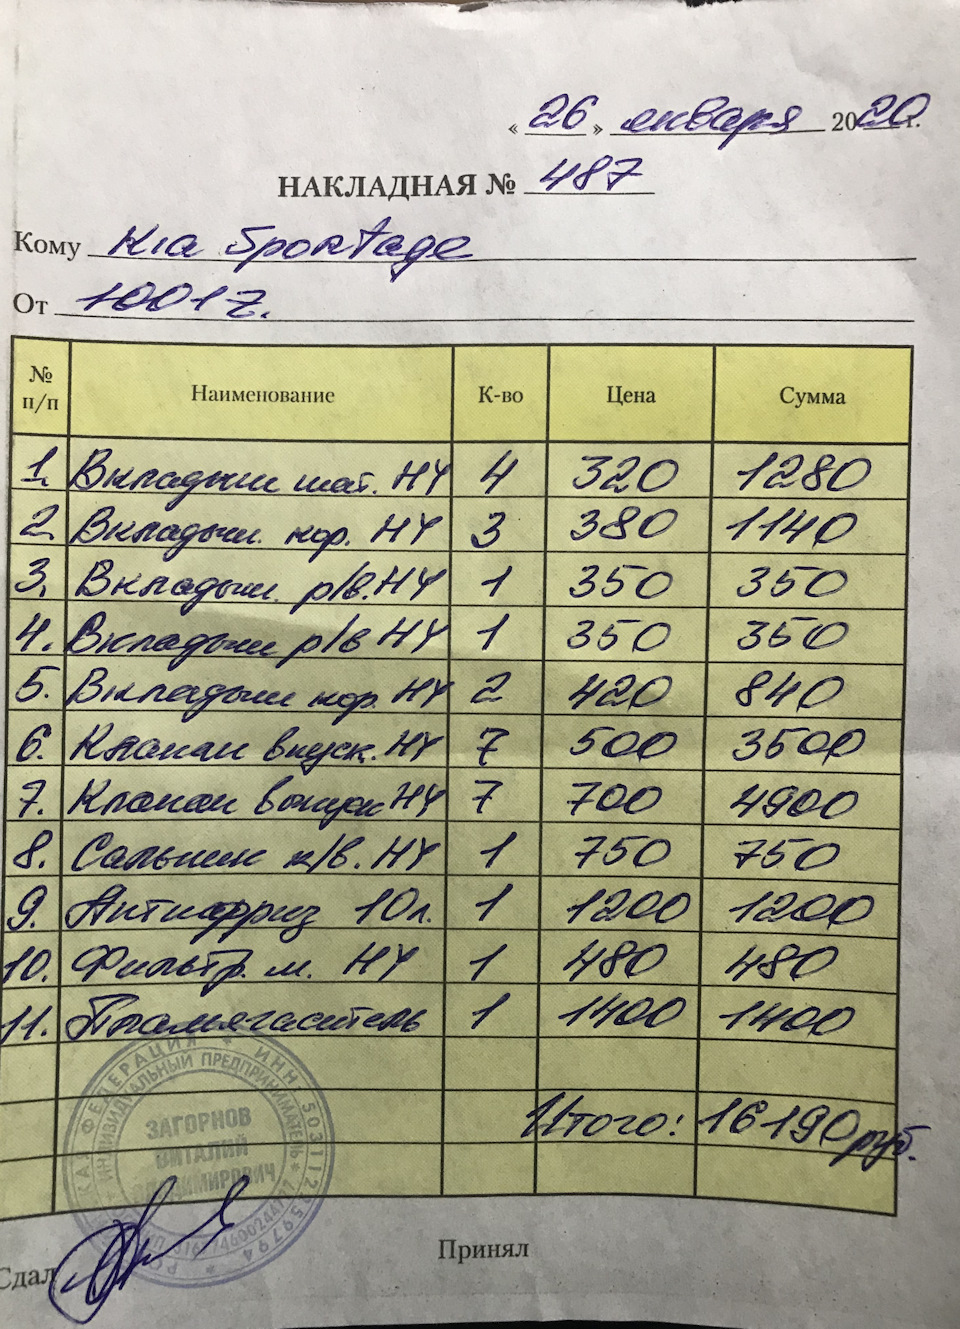 « 26 » января 2020 г.
НАКЛАДНАЯ № 487
Кому Kia Sportage
От 10017.
№ п/п Наименование К-во Цена Сумма
1. Вкладыши шат. HY 4 320 1280
2. Вкладыш. кор. HY 3 380 1140
3. Вкладыш. р/в. HY 1 350 350
4. Вкладыши р/в HY 1 350 350
5. Вкладыши кор. HY 2 420 840
6. Клапан впуск. HY 7 500 3500
7. Клапан выпуск HY 7 700 4900
8. Сальник к/в. HY 1 750 750
9. Антифриз 10л. 1 1200 1200
10. Фильтр. м. HY 1 480 480
11. Пламягаситель 1 1400 1400
Итого: 16190 руб.
ФЕДЕРАЦИЯ * ИНН
ИНДИВИДУАЛЬНЫЙ ПРЕДПРИНИМАТЕЛЬ *
ЗАГОРНОВ
ВИТАЛИЙ
ВЛАДИМИРОВИЧ
Сдал Принял